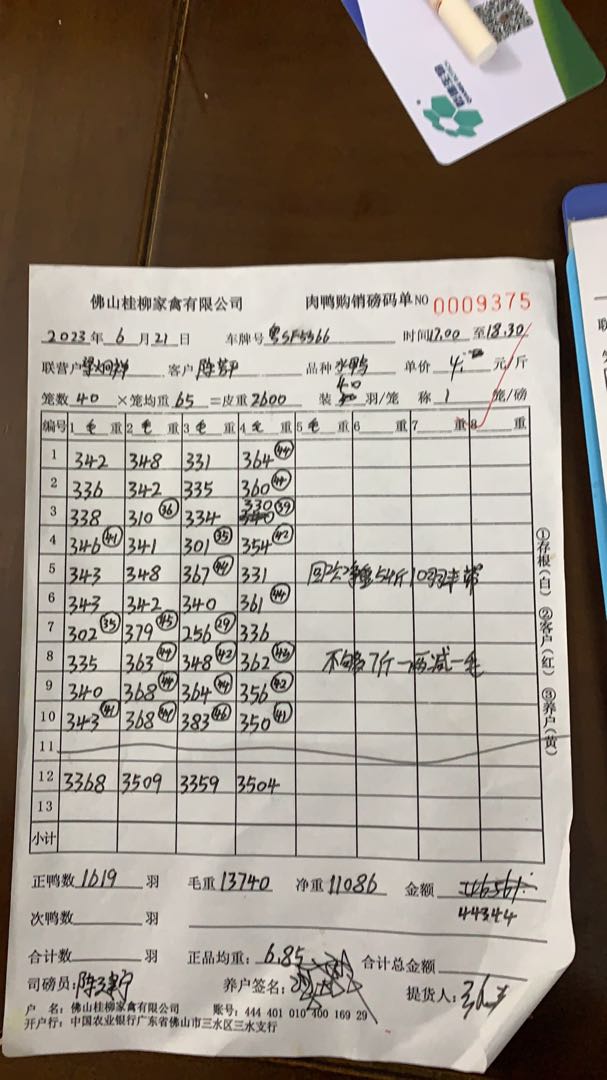 佛山桂柳家禽有限公司 肉鸭购销磅码单 NO 0009375
2023年 6 月 21 日 车牌号 粤SF5366 时间17.00 至18.30
联营户 客户 陈 品种 水鸭 单价 4. 元/斤
笼数 40 ×笼均重 65 =皮重 2600 装 40 羽/笼 称 1 笼/磅
编号 1 毛 重 2 毛 重 3 毛 重 4 毛 重 5 毛 重 6 重 7 重 8 重
1 342 348 331 364 44
2 336 342 335 360 44
3 338 310 36 334 330 39
4 346 41 341 301 35 354 42
5 343 348 367 44 331
6 343 342 340 361 44
7 302 35 379 45 256 29 336
8 335 363 44 348 42 362 43
9 340 368 44 364 44 356 42
10 343 41 368 44 383 46 350 41
11
12 3368 3509 3359 3504
13
小计
回次净重54斤10羽
不够7斤一两减一毛
①存根(白) ②客户(红) ③养户(黄)
正鸭数 1619 羽 毛重 13740 净重 11086 金额
44344
次鸭数 羽
合计数 羽 正品均重: 6.85 合计总金额
司磅员: 陈 养户签名: 提货人:
户 名: 佛山桂柳家禽有限公司 账号: 444 401 010 400 169 29
开户行: 中国农业银行广东省佛山市三水区三水支行